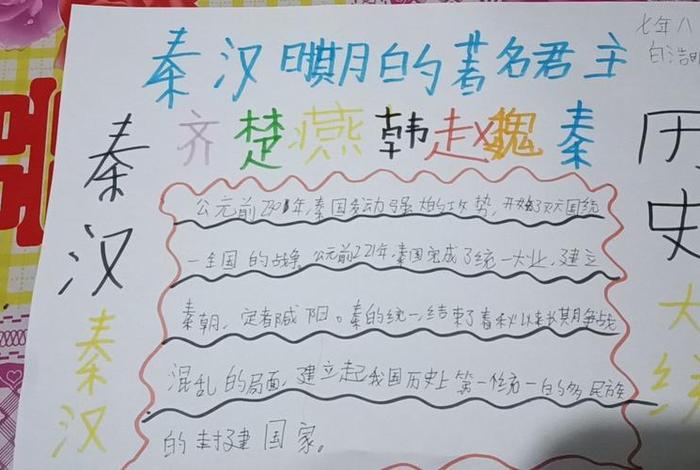 秦汉时期的著名君主
七年八
白浩
齐楚燕韩赵魏秦
秦汉
秦汉
历史
大
公元前230年,秦国发动强大的攻势,开始了灭六国统
一全国的战争。公元前221年,秦国完成了统一大业,建立
秦朝,定都咸阳。秦的统一,结束了春秋以来长期争战
混乱的局面,建立起我国历史上第一个统一的多民族
的封建国家。